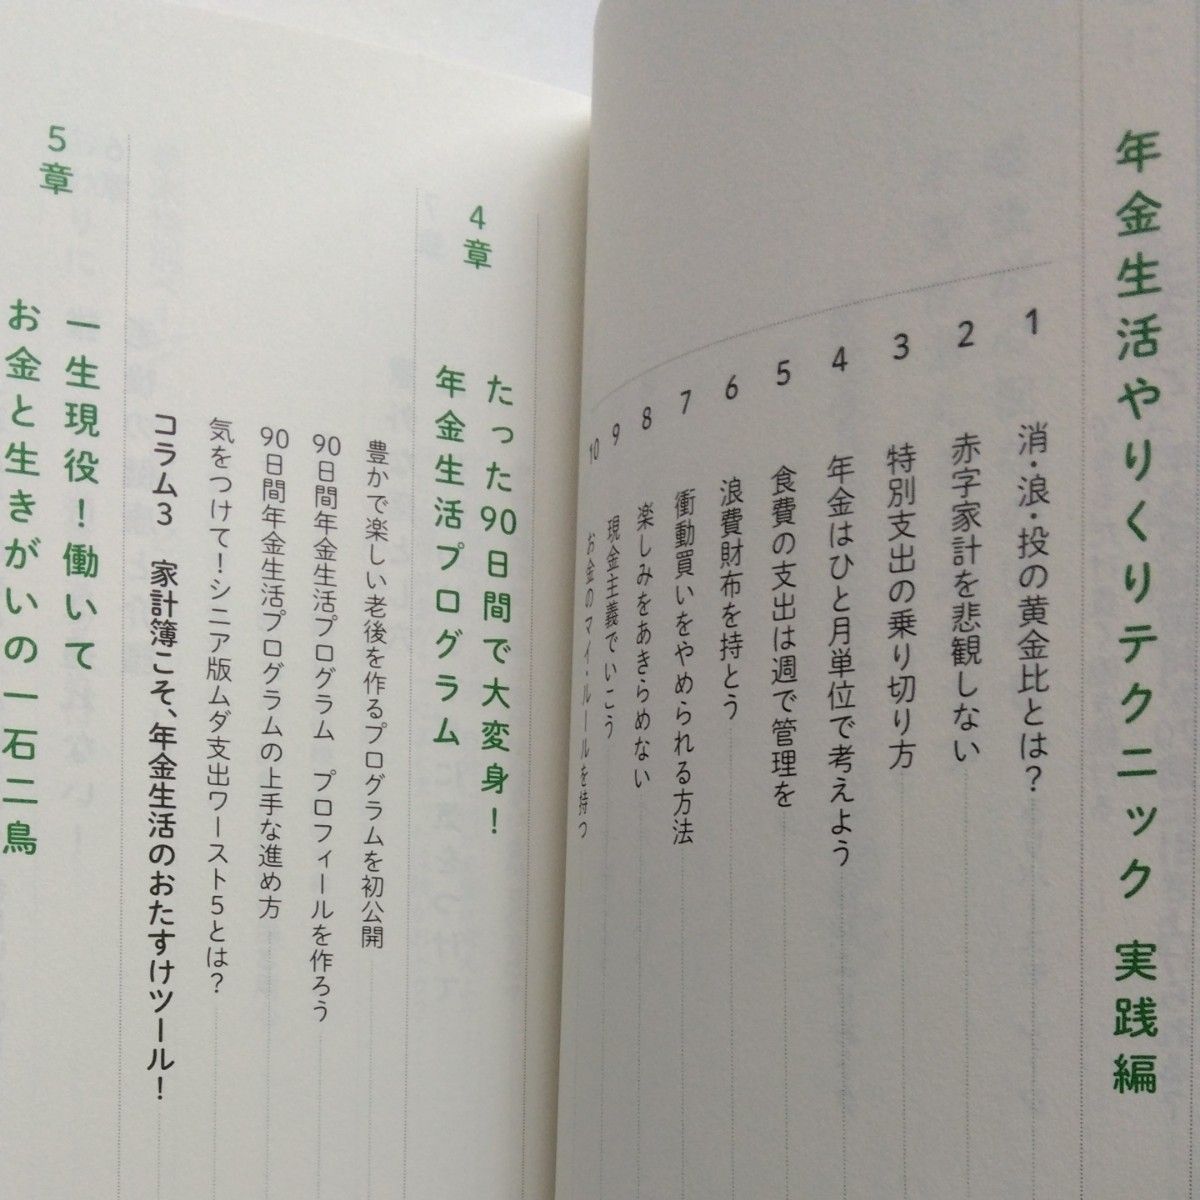 年金生活やりくりテクニック 実践編
1 消・浪・投の黄金比とは？
2 赤字家計を悲観しない
3 特別支出の乗り切り方
4 年金はひと月単位で考えよう
5 食費の支出は週で管理を
6 浪費財布を持とう
7 衝動買いをやめられる方法
8 楽しみをあきらめない
9 現金主義でいこう
10 お金のマイ・ルールを持つ
4章 たった90日間で大変身！
年金生活プログラム
豊かで楽しい老後を作るプログラムを初公開
90日間年金生活プログラム プロフィールを作ろう
90日間年金生活プログラムの上手な進め方
気をつけて！シニア版ムダ支出ワースト5とは？
コラム3 家計簿こそ、年金生活のおたすけツール！
5章 一生現役！働いて
お金と生きがいの一石二鳥